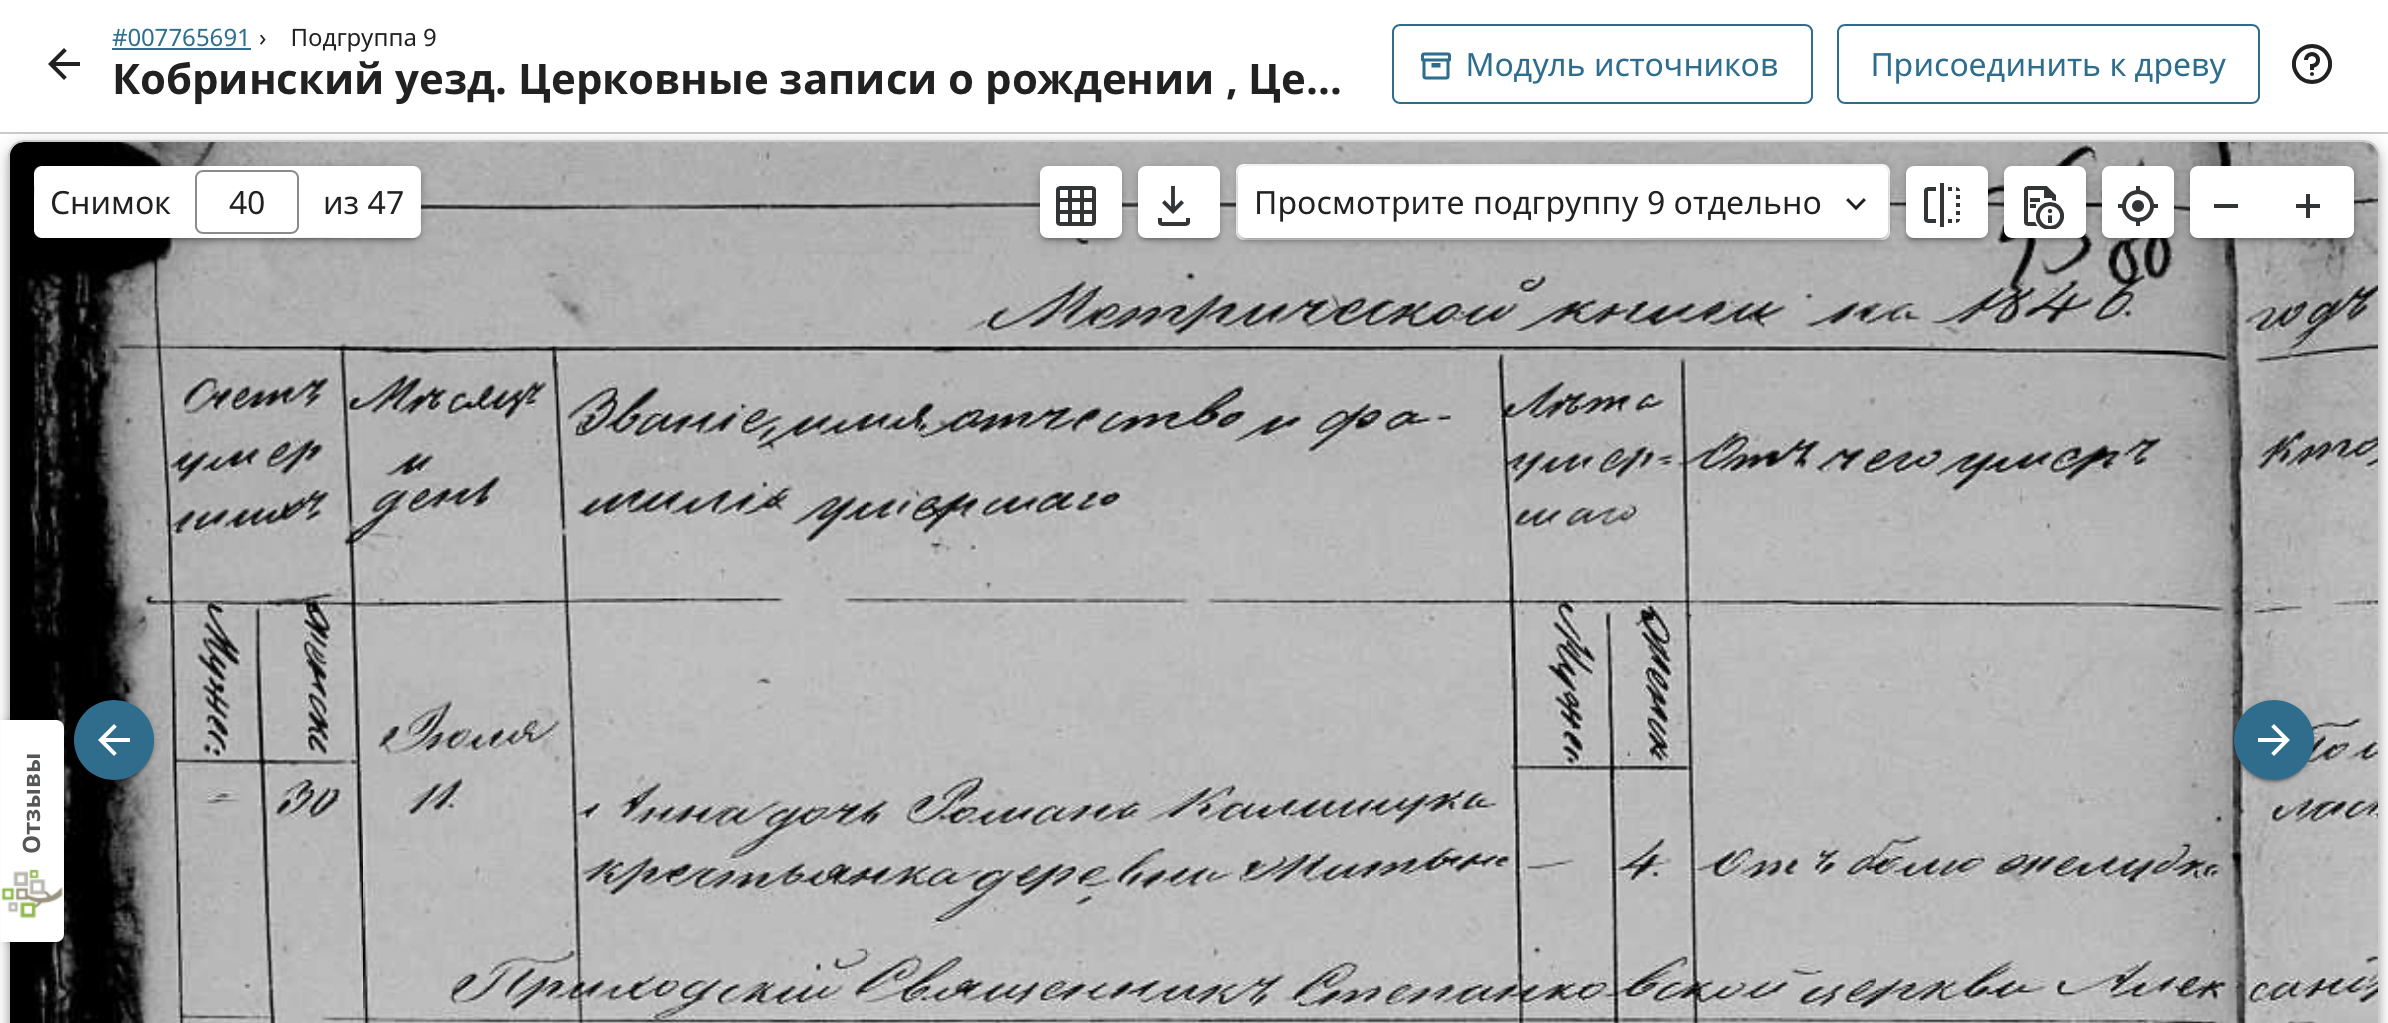 #007765691 › Подгруппа 9
Кобринский уезд. Церковные записи о рождении , Це...
Модуль источников
Присоединить к древу
Снимок 40 из 47
Просмотрите подгруппу 9 отдельно
80
Метрической книги на 1846. годъ
Счетъ умер шихъ
Мѣсяцъ и день
Званіе, имя, отчество и фа-
милія умершаго
Лѣта умер= шаго
Отъ чего умеръ
кто
Мужес:
Женск
Мужес:
Женск
Іюля
- 30 11. Анна дочь Романа Калишука
крестьянка деревни — 4. Отъ боли желудка
Приходскій Священникъ Степанковской церкви Алексан
Отзывы